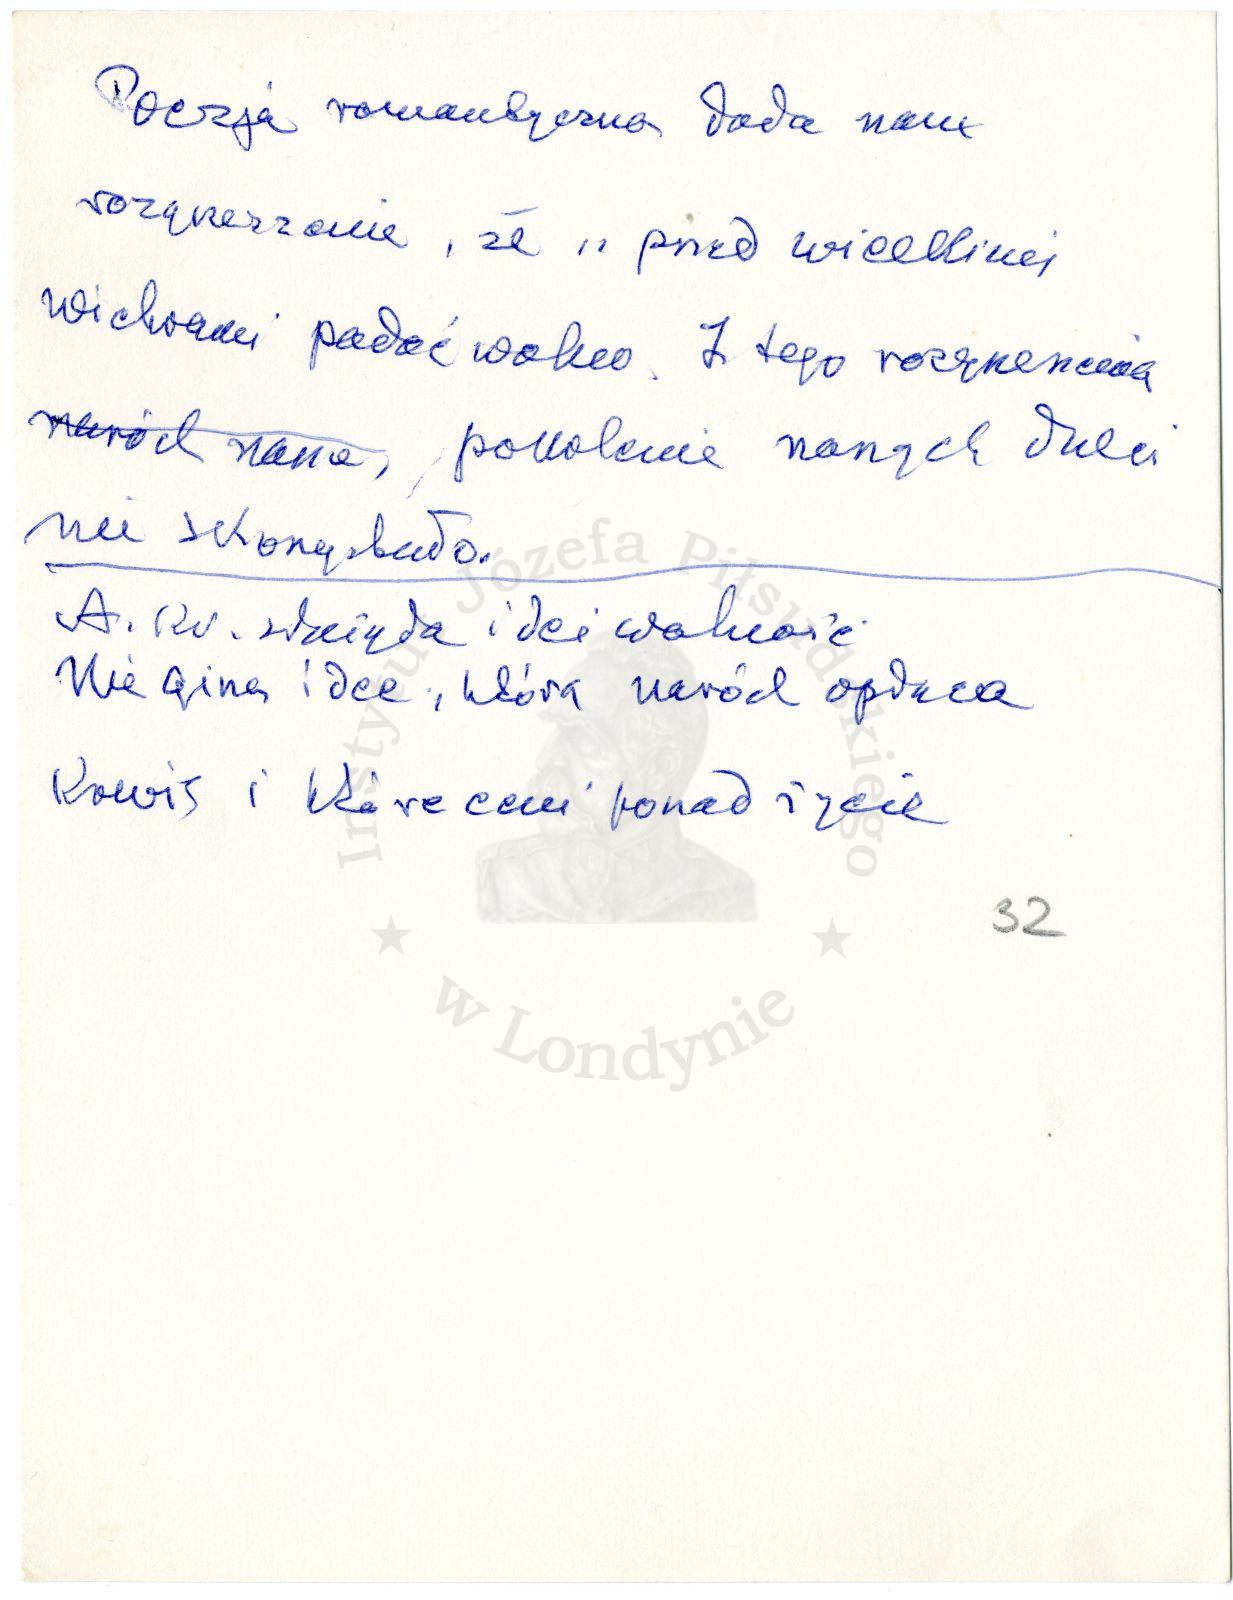 Poezja romantyczna dała nam
rozgrzeszenie, że „przed wielkimi
wichrami padać wolno. Z tego rozgrzeszenia
naród nasz, pokolenie naszych dzieci
nie skorzystało.
A. Kr. służyła idei wolność
Nie giną idee, którą naród opłaca
krwią i które ceni ponad życie
32
Instytut Józefa Piłsudskiego
w Londynie